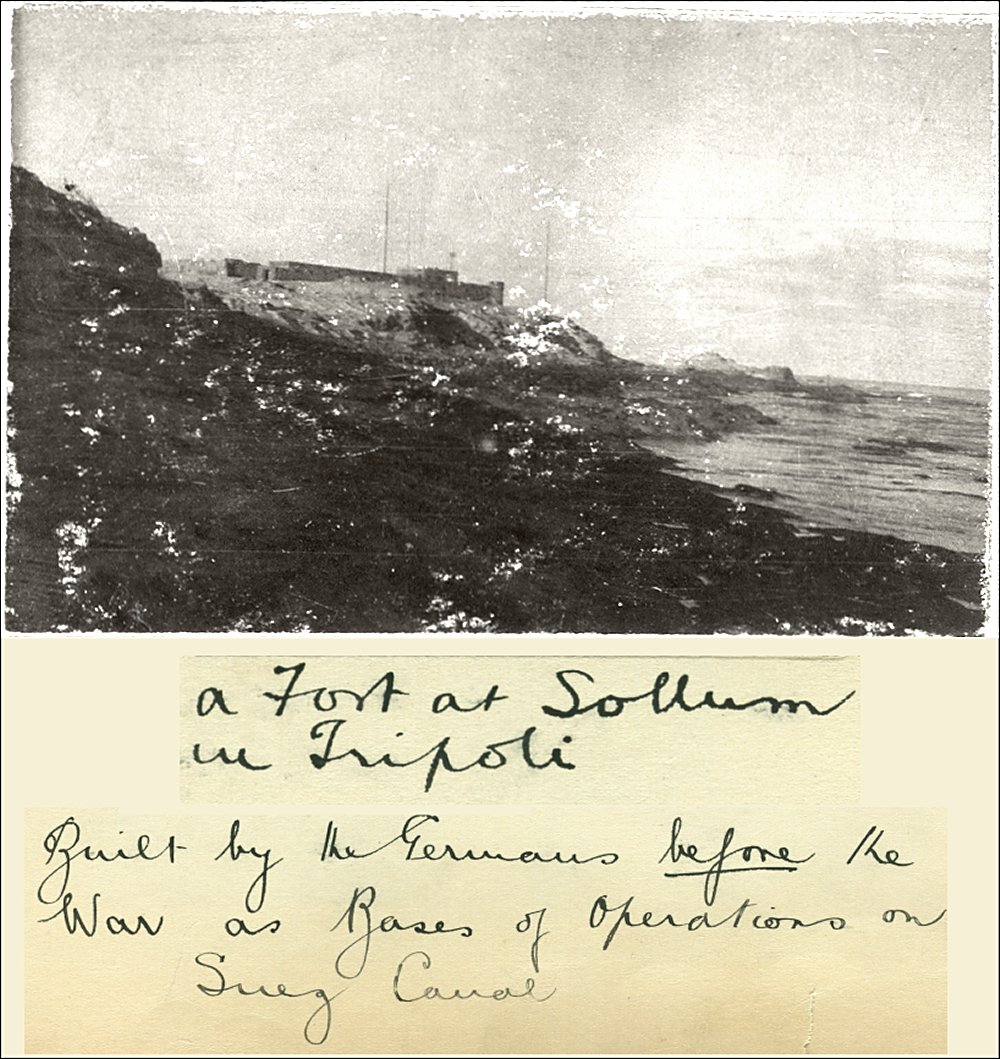 a Fort at Sollum
in Tripoli
Built by the Germans before the
War as Bases of Operations on
Suez Canal